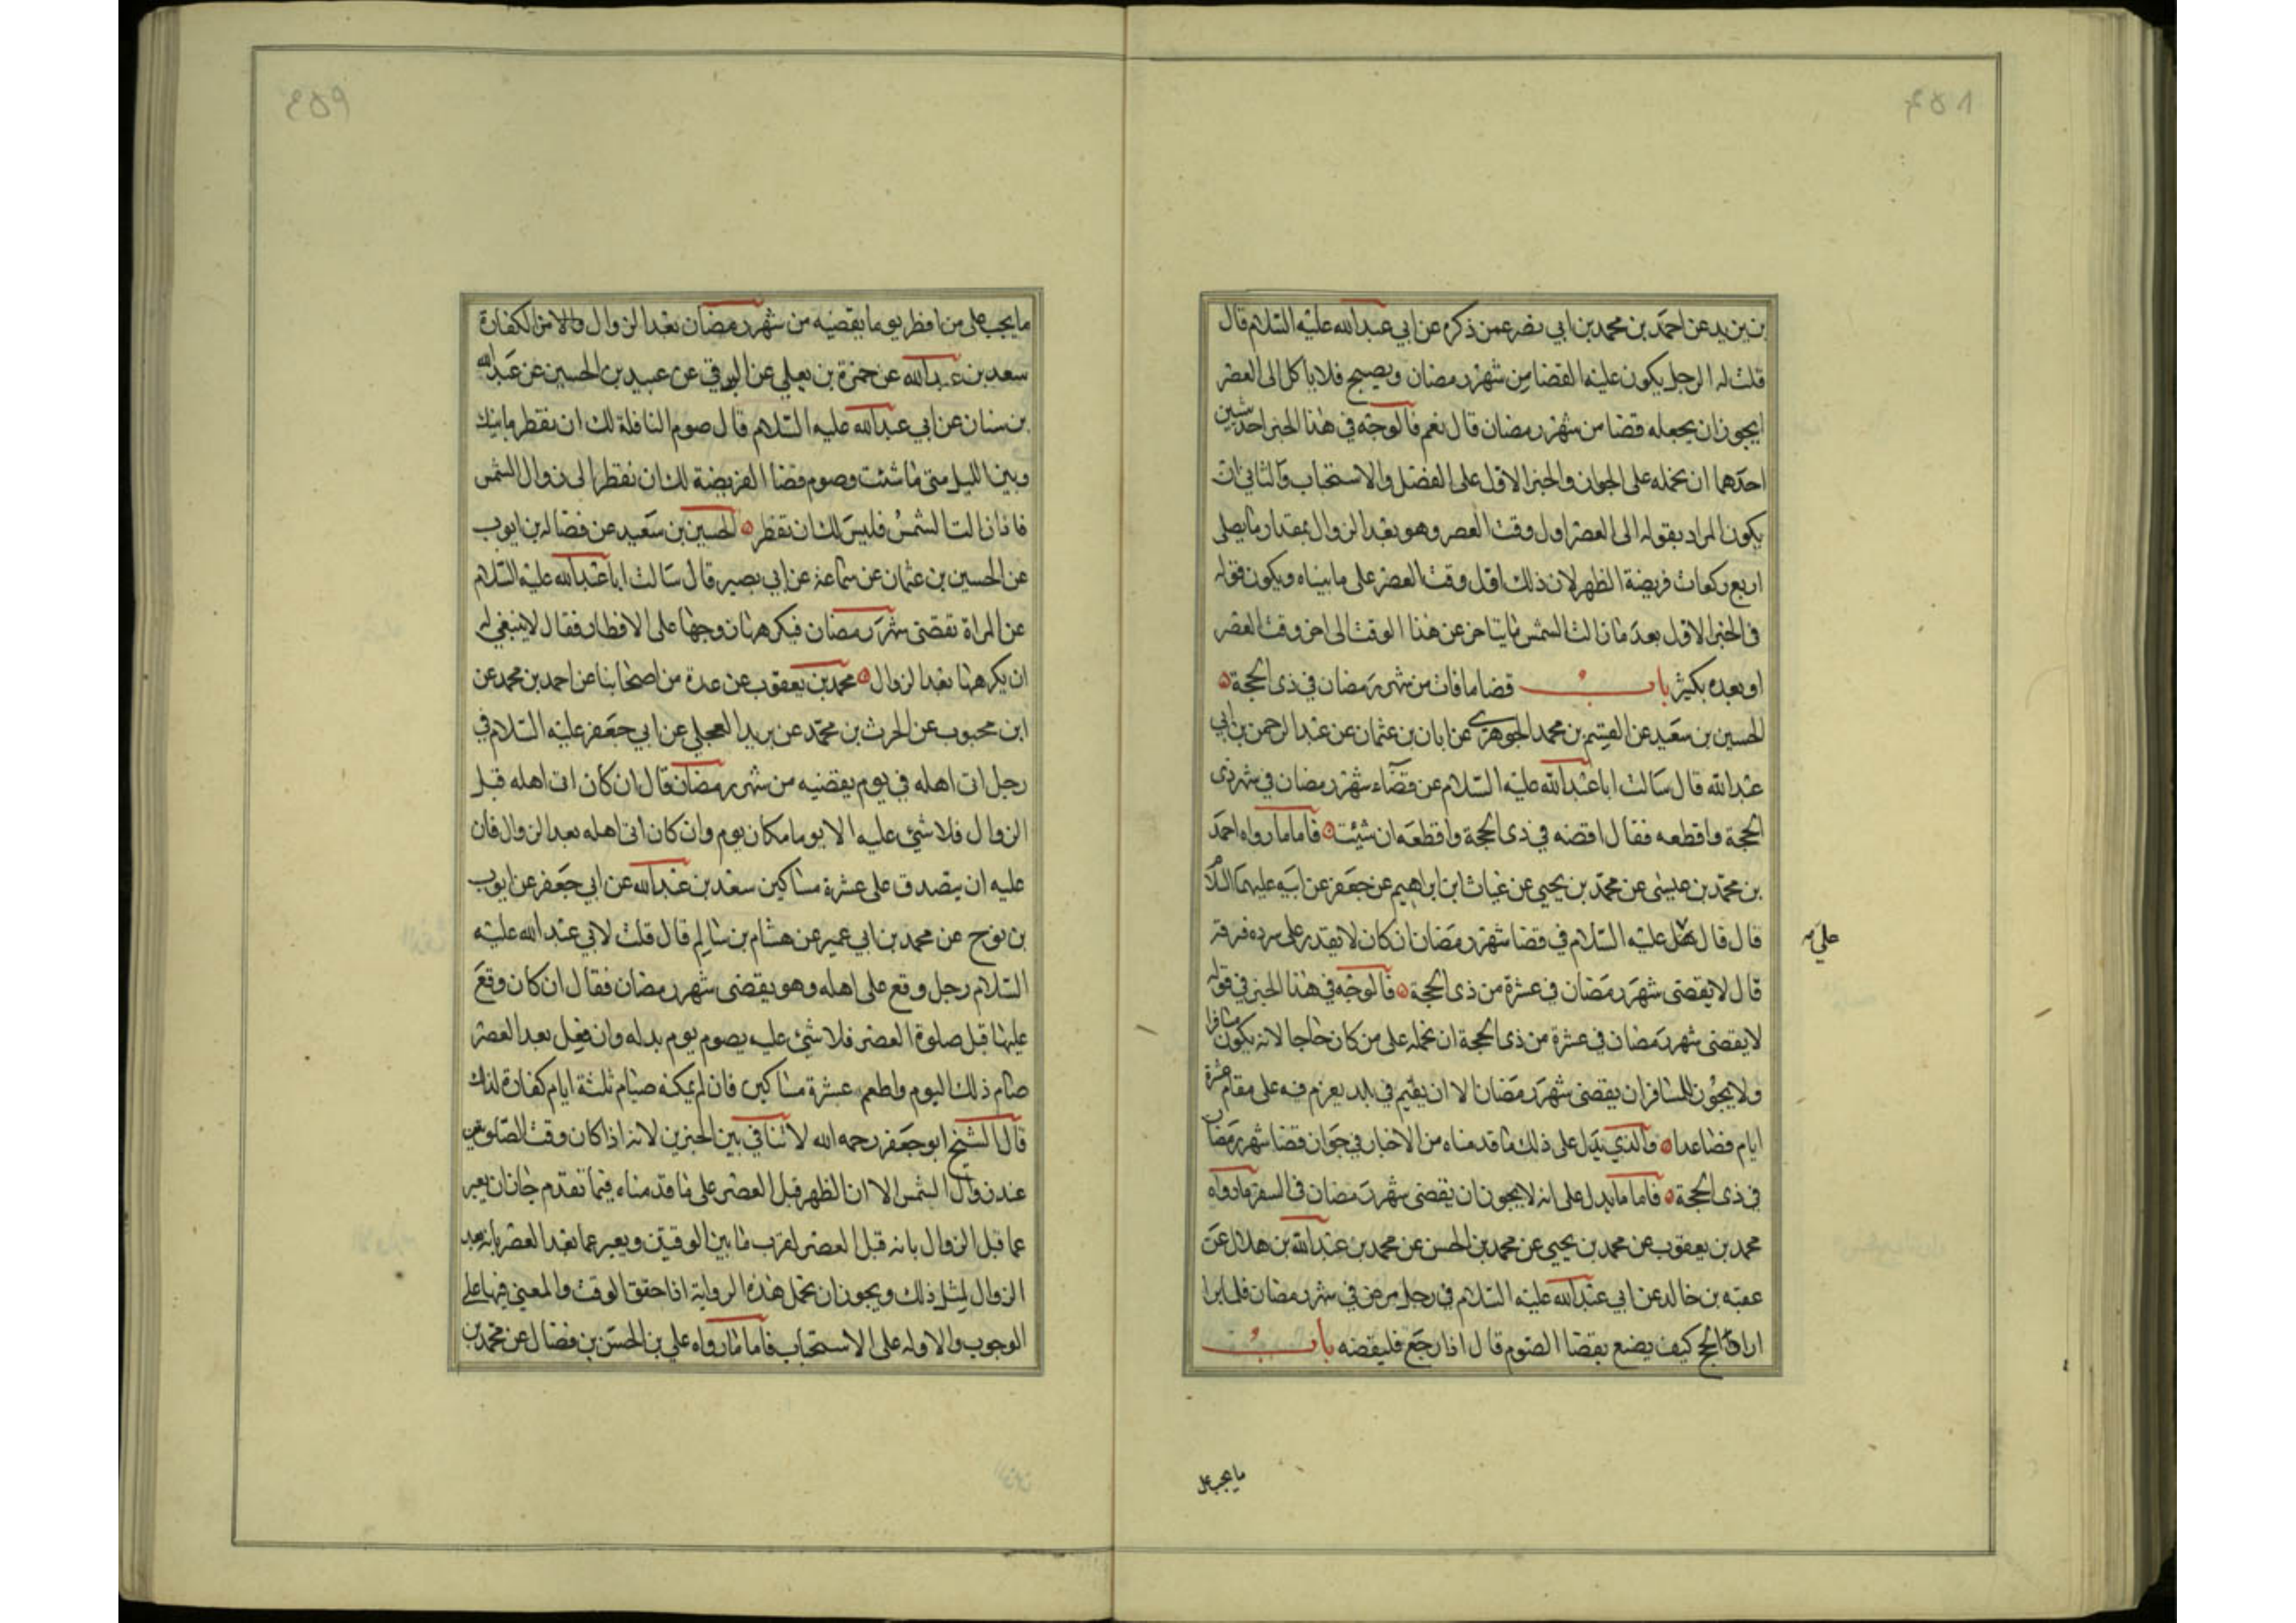 ٤٥٨
بن يزيد عن احمد بن محمد بن ابي نصر عمن ذكره عن ابي عبدالله عليه السلام قال
قلت له الرجل يكون عليه القضا من شهر رمضان ويصبح فلا ياكل الى العصر
ايجوز ان يجعله قضا من شهر رمضان قال نعم فالوجه في هذا الخبر احد شيئين
احدهما ان نحمله على الجواز والخبر الاول على الفضل والاستحباب والثاني ان
يكون المراد بقوله الى العصر اول وقت العصر وهو بعد الزوال بمقدار ما يصلي
اربع ركعات فريضة الظهر لان ذلك اول وقت العصر على ما بيناه ويكون قوله
في الخبر الاول بعد ما زالت الشمس ما يتاخر عن هذا الوقت الى اخر وقت العصر
او بعده بكثير باب قضا ما فات من شهر رمضان في ذي الحجة
الحسين بن سعيد عن القسم بن محمد الجوهري عن ابان بن عثمان عن عبد الرحمن بن ابي
عبدالله قال سالت ابا عبدالله عليه السلام عن قضاء شهر رمضان في شهر ذي
الحجة واقطعه فقال اقضه في ذي الحجة واقطعه ان شئت فاما ما رواه احمد
بن محمد بن عيسى عن محمد بن يحيى عن غياث ابن ابراهيم عن جعفر عن ابيه عليهما السلام
قال قال عليه السلام في قضا شهر رمضان ان كان لا يقدر على سرده فرقه
علي
قال لا يقضى شهر رمضان في عشرة من ذي الحجة فالوجه في هذا الخبر في قوله
لا يقضى شهر رمضان في عشرة من ذي الحجة ان نحمله على من كان حاجا لانه يكون مسافرا
ولا يجوز للمسافر ان يقضى شهر رمضان الا ان يقيم في بلد يعزم فيه على مقام عشرة
ايام فصاعدا والذي يدل على ذلك ما قدمناه من الاخبار في جواز قضا شهر رمضان
في ذي الحجة فاما ما يدل على انه لا يجوز ان يقضى شهر رمضان في السفر ما رواه
محمد بن يعقوب عن محمد بن يحيى عن محمد بن الحسن عن محمد بن عبدالله بن هلال عن
عقبه بن خالد عن ابي عبدالله عليه السلام في رجل مرض في شهر رمضان فلما برا
اراد الحج كيف يصنع بقضا الصوم قال اذا رجع فليقضه باب
ما يجب على
٤٥٩
ما يجب على من افطر يوما يقضيه من شهر رمضان بعد الزوال من الكفارة
سعد بن عبدالله عن حمزة بن يعلي عن البرقي عن عبيد بن الحسين عن عبدالله
بن سنان عن ابي عبدالله عليه السلام قال صوم النافلة لك ان تفطر ما بينك
وبين الليل متى ما شئت وصوم قضا الفريضة لك ان تفطر الى زوال الشمس
فاذا زالت الشمس فليس لك ان تفطر الحسين بن سعيد عن فضاله بن ايوب
عن الحسين بن عثمان عن سماعة عن ابي بصير قال سالت ابا عبدالله عليه السلام
عن المراة تقضى شهر رمضان فيكرهها زوجها على الافطار فقال لا ينبغي له
ان يكرهها بعد الزوال محمد بن يعقوب عن عدة من اصحابنا عن احمد بن محمد عن
ابن محبوب عن الحرث بن محمد عن بريد العجلي عن ابي جعفر عليه السلام في
رجل اتى اهله في يوم يقضيه من شهر رمضان قال ان كان اتى اهله قبل
الزوال فلا شئ عليه الا يوما مكان يوم وان كان اتى اهله بعد الزوال فان
عليه ان يتصدق على عشرة مساكين سعد بن عبدالله عن ابي جعفر عن ايوب
بن نوح عن محمد بن ابي عمير عن هشام بن سالم قال قلت لابي عبد الله عليه
السلام رجل وقع على اهله وهو يقضى شهر رمضان فقال ان كان وقع
عليها قبل صلوة العصر فلا شئ عليه يصوم يوم بدله وان فعل بعد العصر
صام ذلك اليوم واطعم عشرة مساكين فان لم يمكنه صيام ثلثة ايام كفارة لذلك
قال الشيخ ابو جعفر رحمه الله لا تنافي بين الخبرين لانه اذا كان وقت الصلوتين
عند زوال الشمس الا ان الظهر قبل العصر على ما قدمناه فيما تقدم جاز ان يعبر
عما قبل الزوال بانه قبل العصر لقرب ما بين الوقتين ويعبر عما بعد العصر بانه بعد
الزوال لمثل ذلك ويجوز ان نحمل هذه الرواية اذا حقق الوقت والمعنى فيها على
الوجوب والاوله على الاستحباب فاما ما رواه علي بن الحسن بن فضال عن محمد بن